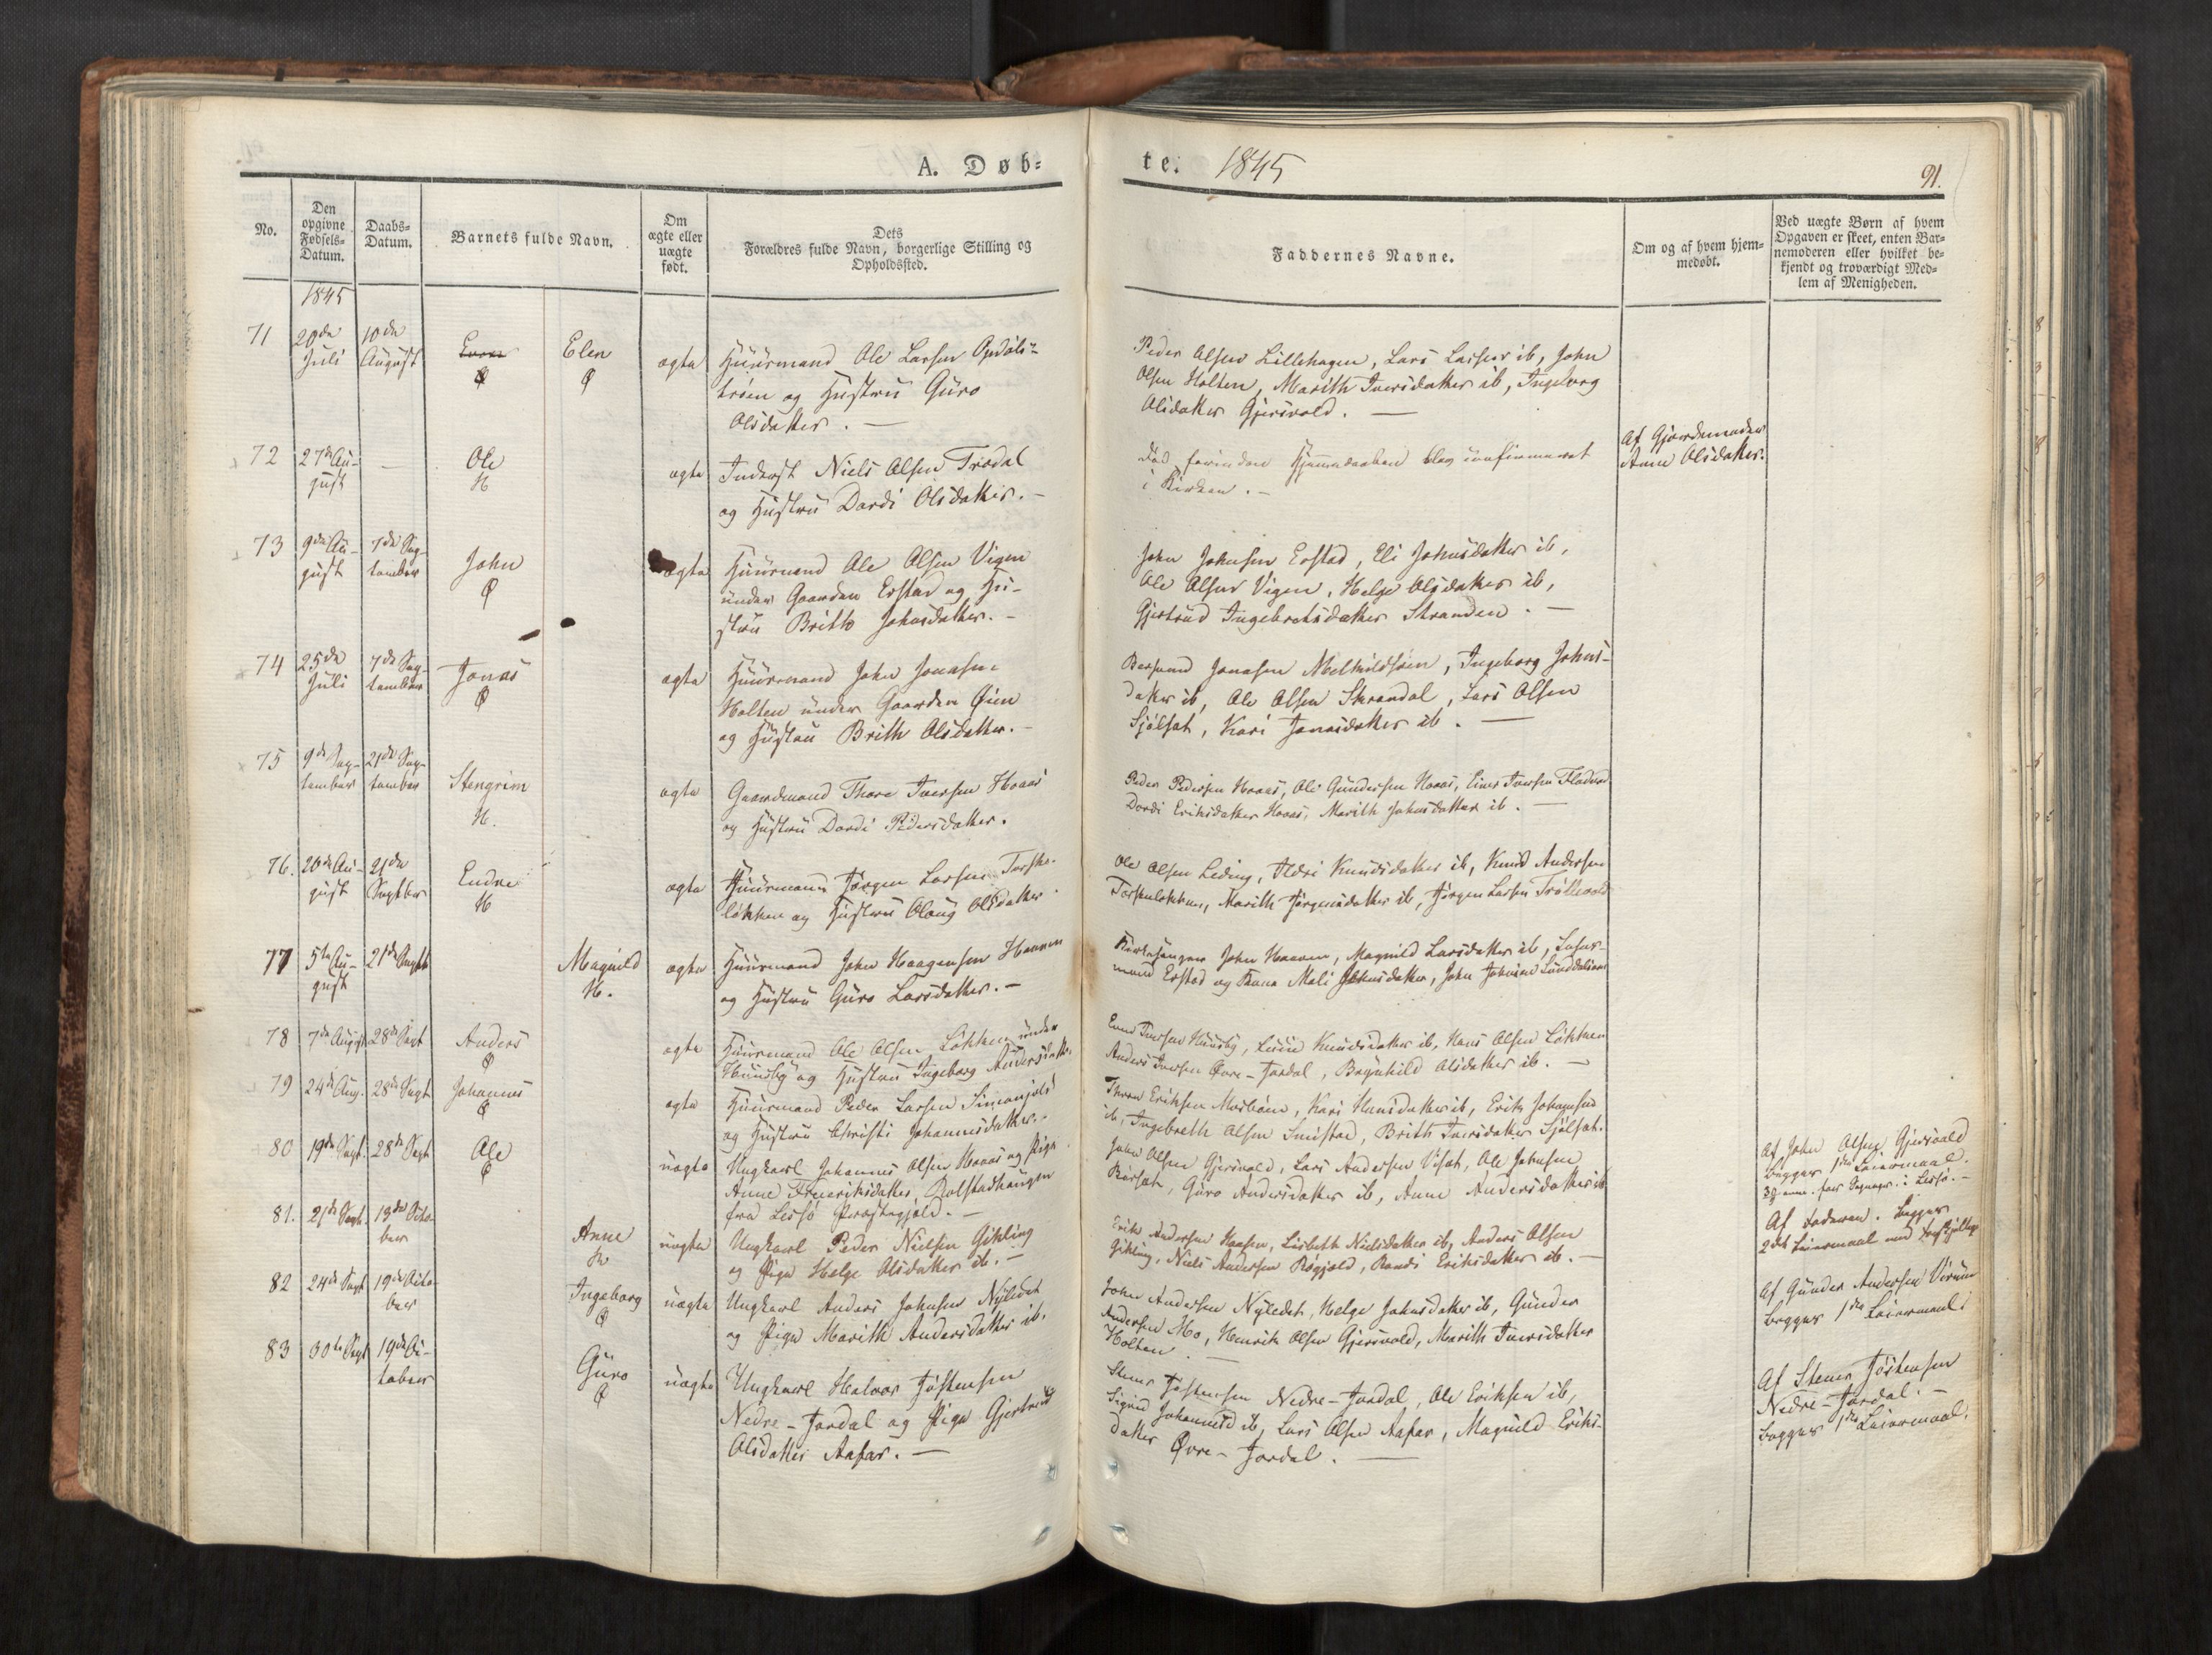 A. Døb-
te. 1845
91.
No.
Den
opgivne
Fødsels-
Datum.
Daabs-
Datum.
Barnets fulde Navn.
Om
ægte eller
uægte
født.
Dets
Forældres fulde Navn, borgerlige Stilling og
Opholdssted.
Faddernes Navne.
Om og af hvem hjem-
medøbt.
Ved uægte Børn af hvem
Opgaven er skeet, enten Bar-
nemoderen eller hvilket be-
kjendt og troværdigt Med-
lem af Menigheden.
1845
71
20de
Juli
10de
August
Elen
Ø
ægte
Huusmand Ole Larsen Opdøls-
trøen og Hustru Guro
Olsdatter. —
Peder Olsen Lillehagen, Lars Larsen ib, John
Olsen Holten, Marith Iversdatter ib, Ingeborg
Olsdatter Gjersvold. —
72
27de Au-
gust
—
Ole
H
ægte
Inderst Niels Olsen Trodal
og Hustru Dordi Olsdatter. —
Død forinden Hjemmedaaben blev confirmeret
i Kirken. —
Af Gjordemoder
Anne Olsdatter.
73
9de Au-
gust
7de Sep-
tember
John
Ø
ægte
Huusmand Ole Olsen Vigen
under Gaarden Erstad og Hu-
stru Brith Johnsdatter. —
John Johnsen Erstad, Eli Johnsdatter ib,
Ole Olsen Vigen, Helge Olsdatter ib,
Gjertrud Ingebretsdatter Stranden. —
74
25de
Juli
7de Sep-
tember
Jonas
Ø
ægte
Huusmand John Jonasen
Holten under Gaarden Øien
og Hustru Brith Olsdatter. —
Bersvend Jonasen, Ingeborg Johns-
datter ib, Ole Olsen Skrondal, Lars Olsen
Sjølset, Kari Jonasdatter ib. —
75
9de Sep-
tember
21de Sep-
tember
Stengrim
H.
ægte
Gaardmand Thore Iversen Hoaas
og Hustru Dordi Pedersdatter.
Peder Pedersen Hoaas, Ole Gundersen Hoaas, Einer Iversen
Dordi Eriksdatter Hoaas, Marith Johnsdatter ib. —
76.
20de Au-
gust
21de
Septber
Endre
H
ægte
Huusmand Jørgen Larsen Torske-
løkken og Hustru Olaug Olsdatter.
Ole Olsen Leding, Ildri Knudsdatter ib, Knud Andersen
Torskeløkken, Marith Jørgensdatter ib, Jørgen Larsen
77
5te Au-
gust
21de Septb
Magnild
H.
ægte
Huusmand John Haagensen Haaven
og Hustru Guro Larsdatter. —
Kirkesanger John Haaven, Magnild Larsdatter ib, Lehns-
mand Erstad og Kone Mali Johnsdatter, John Johnsen
78
7de August
28de Sept
Anders
Ø
ægte
Huusmand Ole Olsen Løkken under
Huusby og Hustru Ingeborg Andersdatter.
Knud Iversen Huusby, Knudsdatter ib, Hans Olsen Løkken
Anders Iversen Øvre-Jordal, Brynhild Olsdatter ib. —
79
24de Aug.
28de Sept
Johannes
Ø
ægte
Huusmand Peder Larsen
og Hustru Christi Johannesdatter.
Thron Eriksen, Kari Hansdatter ib, Erik Johannesen
ib, Ingebreth Olsen Smistad, Brith Iversdatter Sjølset.
80
19de Sept.
28de Sept
Ole
Ø
uægte
Ungkarl Johannes Olsen Hoaas og Pige
Anne Frederiksdatter, Bolstadhaugen
fra Lessø Præstegjeld. —
John Olsen Gjersvold, Lars Andersen Viset, Ole Johnsen
Guro Andersdatter ib, Anne Andersdatter ib
Af John Olsen Gjersvold
begges 1ste Leiermaal.
81.
21de Sept.
13de Octo-
ber
Anne
H
uægte
Ungkarl Peder Nielsen Gikling
og Pige Helge Olsdatter ib. —
Erik Andersen, Lisbeth Nielsdatter ib, Anders Olsen
Gikling, Niels Andersen, Randi Eriksdatter ib. —
Af Faderen. begges
2det Leiermaal
82
24de Sept
19de Octo-
ber
Ingeborg
Ø
uægte
Ungkarl Anders Johnsen Nyledet
og Pige Marith Andersdatter ib.
John Andersen Nyledet, Helge Johnsdatter ib, Gunder
Andersen Mo, Henrik Olsen Gjersvold, Marith Iversdatter
Holten. —
Af Gunder Andersen
begges 1ste Leiermaal
83
30te Sept
19de Oc-
tober
Guro
Ø
uægte
Ungkarl Halvor Jøstensen
Nedre-Jordal og Pige Gjertrud
Olsdatter Aasar. —
Stener Jøstensen Nedre-Jordal, Ole Eriksen ib,
Sigrid Johannesd ib, Lars Olsen Aasar, Magnild Eriks-
datter Øvre-Jordal. —
Af Stener Jøstensen
Nedre-Jord. —
begges 1ste Leiermaal.